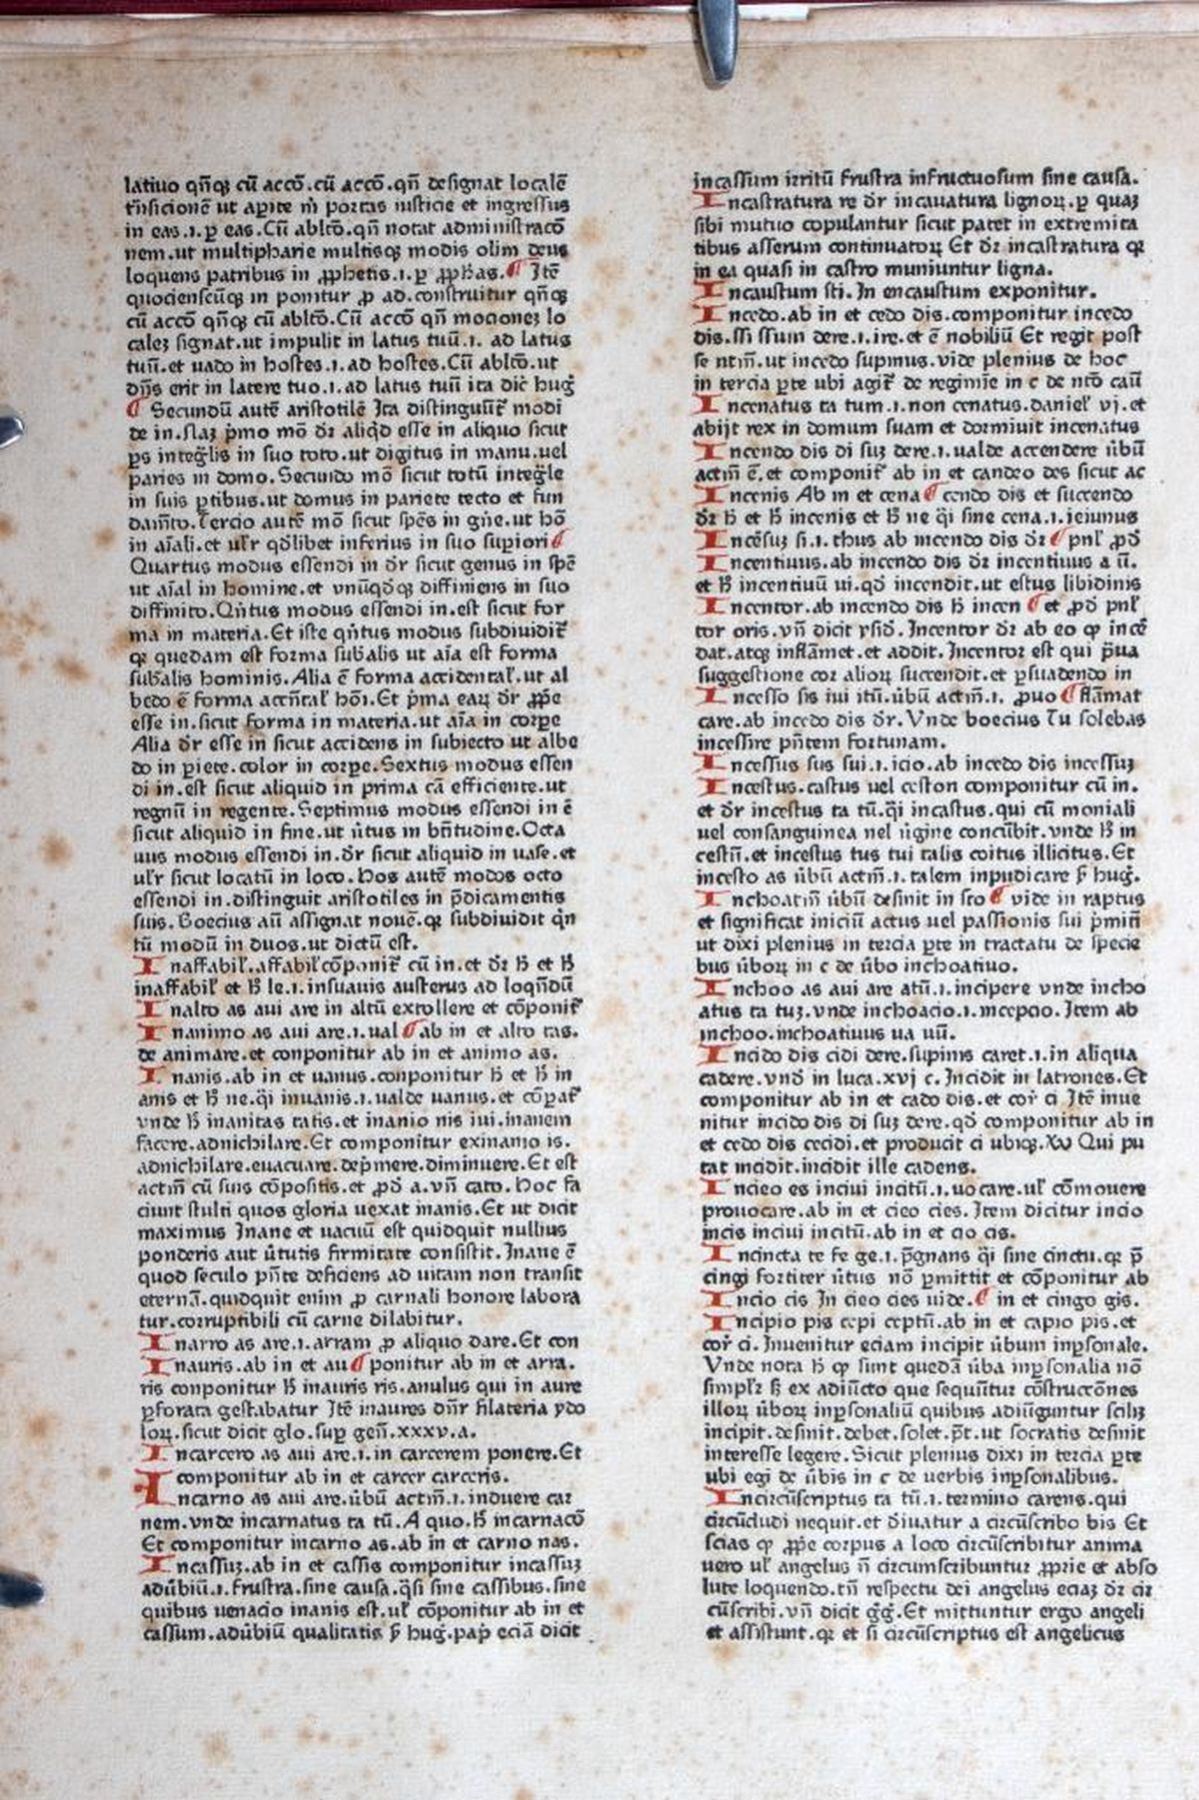 latiuo qn̄qꝫ cū accō.cū accō.qn̄ designat localē
trn̄sicionē ut apite m̄ portas iusticie et ingressus
in eas.ı.ꝑ eas.Cū ablt̄o.qn̄ notat administracō
nem.ut multipharie multisqꝫ modis olim deus
loquens patribus in ꝓphetis.ı.ꝑ ꝓphas.¶ Itē
quociensc̄uqꝫ in ponitur ꝓ ad.construitur qn̄qꝫ
cū accō qn̄qꝫ cū ablt̄o.Cū accō qn̄ mocioneꝫ lo
caleꝫ signat.ut impulit in latus tuū.ı. ad latus
tuū.et uado in hostes.ı.ad hostes.Cū ablt̄o.ut
dn̄s erit in latere tuo.ı.ad latus tuū ita dic̄ huḡ
¶ Secundū autē aristotilē Ita distinguūt̄ modi
de in.Naꝫ p̄mo mō dꝛ aliqd̄ esse in aliquo sicut
ps inteḡlis in suo toto.ut digitus in manu.uel
paries in domo.Secundo mō sicut totū inteḡle
in suis ꝑtibus.ut domus in pariete tecto et fun
dam̄to.Tercio autē mō sicut spēs in gn̄e.ut hō
in aīali.et ul̄r qd̄libet inferius in suo supiori¶
Quartus modus essendi in dr̄ sicut genus in spē
ut aīal in homine.et vnūqd̄qꝫ diffiniens in suo
diffinito.Qn̄tus modus essendi in.est sicut for
ma in materia.Et iste qn̄tus modus subdiuidit̄
qꝛ quedam est forma sub̄alis ut aīa est forma
sub̄alis hominis.Alia ē forma accidental̄.ut al
bedo ē forma accn̄tal̄ hōı.Et p̄ma eaꝝ dr̄ ꝓpe
esse in.sicut forma in materia.ut aīa in corpe
Alia dr̄ esse in sicut accidens in subiecto ut albe
do in piete.color in corpe.Sextus modus essen
di in.est sicut aliquid in prima cā efficiente.ut
regnū in regente.Septimus modus essendi in ē
sicut aliquid in fine.ut ūtus in bn̄titudine.Octa
uus modus essendi in.dr̄ sicut aliquid in uase.et
ul̄r sicut locatū in loco.Hos autē modos octo
essendi in.distinguit aristotiles in p̄dicamentis
suis.Boecius aū assignat nouē.qꝛ subdiuidit qn̄
tū modū in duos.ut dictū est.
Inaffabil̄.affabil̄ cōponit̄ cū in.et dꝛ h̄ et h̄
inaffabil̄ et h̄ le.ı.insuauis austerus ad loqn̄dū
Inalto as aui are in altū extollere et cōponit̄
Inanimo as aui are.ı.ual ¶ ab in et alto tas.
de animare.et conponitur ab in et animo as.
Inanis.ab in et uanus.conponitur h̄ et h̄ in
anis et h̄ ne.q̄i inuanis.ı.ualde uanus.et cōpat̄
vnde h̄ inanitas tatis.et inanio nis iui.inanem
facere.adnichilare.Et componitur exinanio is.
adnichilare.euacuare.dep̄mere.diminuere.Et est
actm̄ cū suis cōpositis.et ꝓd̄ a.vn̄ cato.Hoc fa
ciunt stulti quos gloria uexat inanis.Et ut dicit
maximus Inane et uacuū est quidquit nullius
ponderis aut ūtutis firmitate consistit.Inane ē
quod seculo pn̄te deficiens ad uitam non transit
eternā.quidquit enim ꝓ carnali honore labora
tur.corruptibili cū carne dilabitur.
Inarro as are.ı.arram ꝓ aliquo dare.Et con
Inauris.ab in et au ¶ ponitur ab in et arra.
ris conponitur h̄ inauris ris.anulus qui in aure
ꝑforata gestabatur Itē inaures dn̄r filateria ydo
loꝝ.sicut dicit glo.sup gen̄.xxxv.a.
Incarcero as aui are.ı.in carcerem ponere.Et
componitur ab in et carcer carceris.
Incarno as aui are.ūbū actm̄.ı.induere car
nem.vnde incarnatus ta tū.A quo.h̄ incarnacō
Et componitur incarno as.ab in et carno nas.
Incassuꝫ.ab in et cassis componitur incassuꝫ
adūbiū.ı.frustra.sine causa.q̄si sine cassibus.sine
quibus uenacio inanis est.ul̄ cōponitur ab in et
cassum.adūbiū qualitatis s̄ huḡ.pap̄ eciā dicit
incassum irritū frustra infructuosum sine causa.
Incastratura re dr̄ incauatura lignoꝝ.ꝑ quaꝫ
sibi mutuo copulantur sicut patet in extremita
tibus asserum continuatoꝝ Et dꝛ incastratura qꝛ
in ea quasi in castro muniuntur ligna.
Incaustum sti.In encaustum exponitur.
Incedo.ab in et cedo dis.componitur incedo
dis.ssi ssum dere.ı.ire.et ē nobiliū Et regit post
se ntm̄.ut incedo supinus.vide plenius de hoc
in tercia ꝑte ubi agit̄ de regimīe in c de nt̄o cau̅
Incenatus ta tum.ı.non cenatus.daniel̄ vj.et
abijt rex in domum suam et dormiuit incenatus
Incendo dis di suꝫ dere.ı.ualde accendere ūbū
actm̄ ē.et componit̄ ab in et candeo des sicut ac
Incenis Ab in et cena ¶ cendo dis et succendo
dꝛ h̄ et h̄ incenis et h̄ ne q̄i sine cena.ı.ieiunus
Incēsuꝫ si.ı.thus ab incendo dis dꝛ ¶ pnl̄ ꝓd̄
Incentiuus.ab incendo dis dꝛ incentiuus a ū.
et h̄ incentiuū ui.qd̄ incendit.ut estus libidinis
Incentor.ab incendo dis h̄ incen ¶ et ꝓd̄ pnl̄
tor oris.vn̄ dicit ysid̄.Incentor dꝛ ab eo ꝙ incē
dat.atqꝫ inflāmet.et addit.Incentor est qui p̄ua
suggestione cor alioꝝ succendit.et ꝑsuadendo in
Incesso sis iui itū.ūbū actm̄.ı. ꝓuo ¶ flāmat
care.ab incedo dis dr̄.Vnde boecius Tu solebas
incessire pn̄tem fortunam.
Incessus sus sui.ı.icio.ab incedo dis incessuꝫ
Incestus.castus uel ceston componitur cū in.
et dr̄ incestus ta tū.q̄i incastus.qui cū moniali
uel consanguinea nel ūgine concūbit.vnde h̄ in
cestū.et incestus tus tui talis coitus illicitus.Et
incesto as ūbū actm̄.ı.talem inpudicare s̄ huḡ.
Inchoatm̄ ūbū desinit in sco ¶ vide in raptus
et significat iniciū actus uel passionis sui p̄miñ
ut dixi plenius in tercia ꝑte in tractatu de specie
bus ūboꝝ in c de ūbo inchoatiuo.
Inchoo as aui are atū.ı.incipere vnde incho
atus ta tuꝫ.vnde inchoacio.ı.incepcio.Item ab
inchoo.inchoatiuus ua uū.
Incido dis cidi dere.supinis caret.ı.in aliqua
cadere.vnd̄ in luca.xvj c.Incidit in latrones.Et
componitur ab in et cado dis.et cor̄ ci Itē inue
nitur incido dis di suꝫ dere.qd̄ componitur ab in
et cedo dis cecidi.et producit ci ubiqꝫ.Xv Qui pu
tat incidit.incidit ille cadens.
Incieo es inciui incitū.ı.uocare.ul̄ cōmouere
prouocare.ab in et cieo cies.Item dicitur incio
incis inciui incitū.ab in et cio cis.
Incincta te fe ge.ı.p̄gnans q̄i sine cinctu.qꝛ p̄
cingi fortiter ūtus nō ꝑmittit et cōponitur ab
Incio cis In cieo cies uide.¶ in et cingo gis.
Incipio pis cepi ceptū.ab in et capio pis.et
cor̄ ci.Inuenitur eciam incipit ūbum inpsonale.
Vnde nota h̄ ꝙ sunt quedā ūba inpsonalia nō
simplr̄ sꝫ ex adiūcto que sequūtur cōstruccōnes
illoꝝ ūboꝝ inpsonaliū quibus adiūguntur scilꝫ
incipit.desinit.debet.solet.p̄t.ut socratis desinit
interesse legere.Sicut plenius dixi in tercia ꝑte
ubi egi de ūbis in c de uerbis inpsonalibus.
Incircūscriptus ta tū.ı.termino carens.qui
circūcludi nequit.et d̄iuatur a circūscribo bis Et
scias ꝙ ꝓpe corpus a loco circūscribitur anima
uero ul̄ angelus n̄ circumscribuntur ꝓprie et abso
lute loquendo.tn̄ respectu dei angelus eciaꝫ dꝛ cir
cūscribi.vn̄ dicit g̅g̅.Et mittuntur ergo angeli
et assistunt.qꝛ et si circūscriptus est angelicus